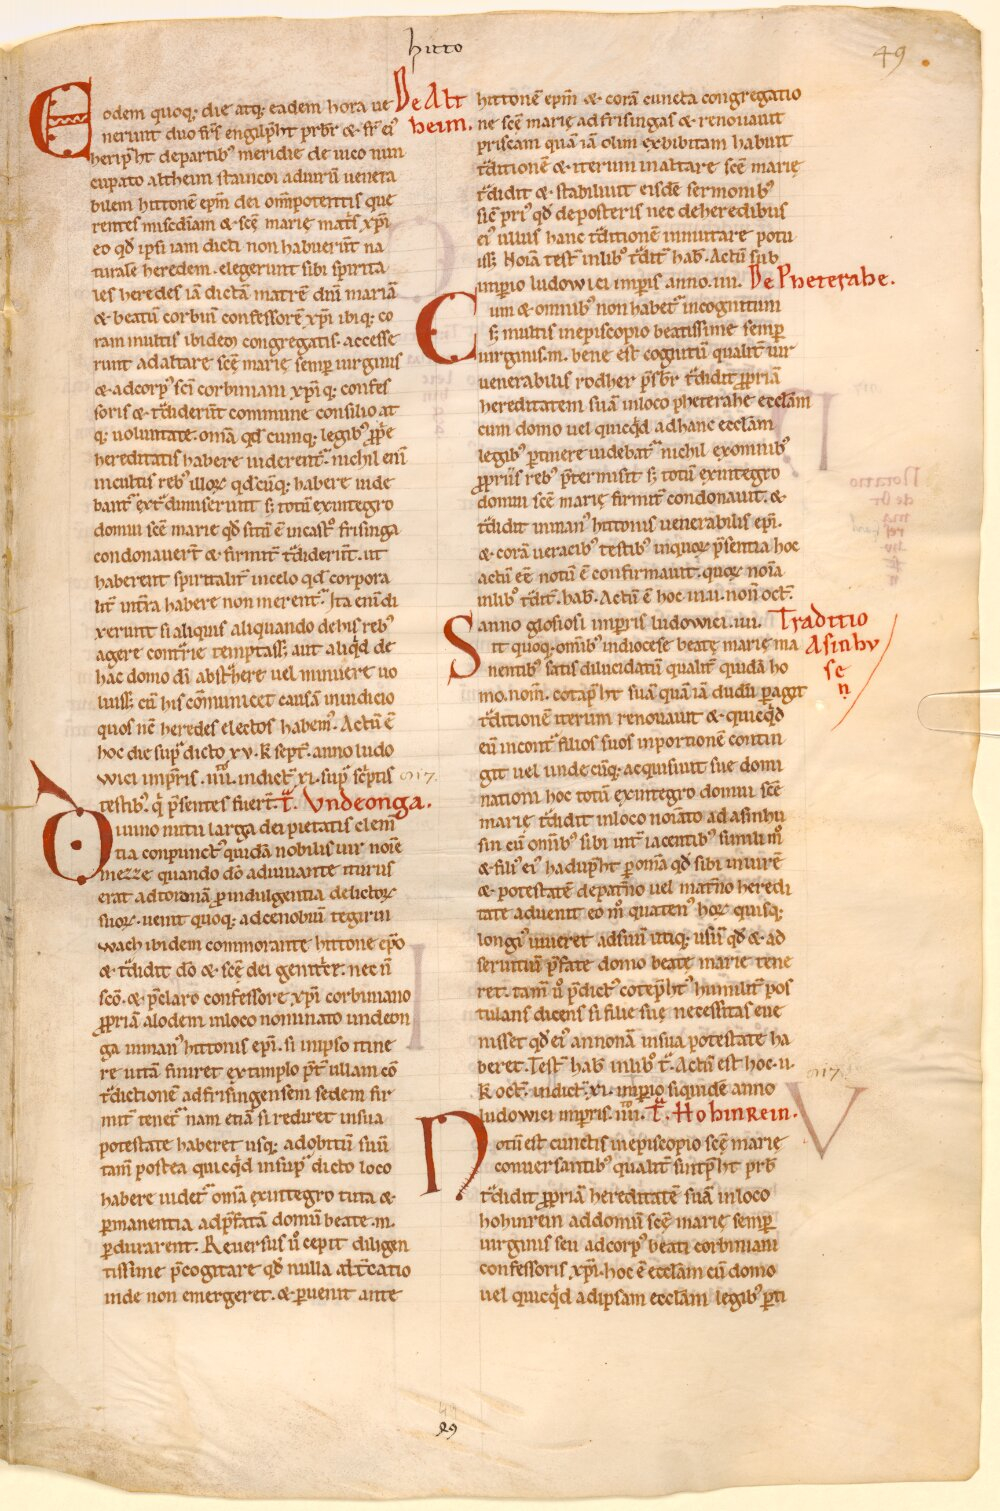 hitto
49
De Alt
heim.
Eodem quoq; die atq; eadem hora ue
nerunt duo fr̃s engilp̃ht prb̃r & fr̃ ei᾽
heripht de partib᾽ meridie de uico nun
cupato altheim
bilem hittonē ep̃m dei om̃ipotentis que
rentes misc̃diam & sc̃e marie mat̃s xp̃i
eo qđ ipsi iam dicti non habuerũt na
turale heredem. elegerunt sibi spirita
les heredes iā dictā matrē dñi mariā
& beatū corbiñ confessorē xp̃i ibiq; co
ram multis ibidem congregatis. accesse
runt ad altare sc̃ę marię semp̱ uirginis
& ad corp᾽ sc̃i corbiniani xp̃i q; confes
soris & t̃diderūt commune consilio at
q; uoluntate. om̃a qđ cumq; legib᾽ p̱pe
hereditatis habere uiderent᾽. nichil eni
in cultis reb᾽ illoꝝ qđcūq; habere uide
bant᾽ ext᾽ dimiserunt s; totū ex integro
domui sc̃e marie qđ sitū ē in cast᾽o frisinga
condonauer̃t & firmit̃ t̃diderūt. ut
haberent spiritalit̃ in celo qđ corpora
lit̃ int̃ra habere non merent᾽. Ita eni di
xerunt si aliquis aliquando de his reb᾽
agere cont᾽rie temptass; aut aliq̃d de
hac domo dī abst᾽here uel minuere uo
luiss; cū his cōmunicet causā in iudicio
quos nēc heredes electos habem᾽. Actū ē
hoc die sup᾽ dicto xv. k sept̃. anno ludo
wici imp̱ris .iiii. indict̃ xi. sup᾽ sc̃ptis
817.
testib᾽. q̃ p̃sentes fuer̃t. T᾽. Undeonga.
Diuino nutu larga dei pietatis clem̃
tia conpunct᾽ quidā nobilis uir noīe
mezze quando dō adiuuante iturus
erat ad romā p̱ indulgentia delictoꝝ
suoꝝ. uenit quoq; ad cenobiū tegirin
wach ibidem commorante hittone ep̃o
& t̃didit dō & sc̃e dei genit̃r. nec ñ
scō. & p̃claro confessore xp̃i corbiniano
p̱priā alodem in loco nominato undeon
ga in man᾽ hittonis ep̃i. si in ipso itine
re uitā finiret extimplo p̃t ullam cō
t̃dictionē ad frisingensem sedem fir
mit̃ tenet᾽. nam etiā si rediret in sua
potestate haberet usq; ad obitū suū
tam̃ postea quicq̃d in sup᾽ dicto loco
habere uidet᾽ om̃a ex integro tuta &
p̱manentia ad p̃fatā domū beate .m.
p̱durarent. Reuersus ū cepit diligen
tissime p̃cogitare qđ nulla alt̃catio
inde non emergeret. & p̱uenit ante
hittonē ep̃m & corā cuncta congregatio
ne sc̃e marię ad frisingas & renouauit
priscam quā iā olim exhibitam habuit
t̃ditionē & iterum in altare sc̃e marię
t̃didit & stabiliuit eisdē sermonib᾽
sic̃ pri᾽ qđ de posteris nec de heredibus
ei᾽ ullus hanc t̃ditionē inmutare potu
iss;. Noīa test̃ in lib᾽ t̃dit̃ hab̃. Actū sub
imp̱io ludowici imp̱ris anno .iiii. De Pheterahe.
Cum & omnib᾽ non habet᾽ incognitum
s; multis in episcopio beatissime semp̱
uirginis .m. bene est cognitū qualit̃ uir
venerabilis rodher p̃sb̃r t̃didit p̱priā
hereditatem suā in loco pheterahe eccłam
cum domo uel quicq̃d ad hanc eccłam
legib᾽ pertinere uidebat᾽ nichil ex omnib᾽
p̱priis reb᾽ p̃termisit s; totū ex integro
domui sc̃e marię firmit̃ condonauit. &
t̃didit in man᾽ hittonis uenerabilis ep̃i.
& corā ueracib᾽ testib᾽ in quoꝝ p̃sentia hoc
actū eē notū ē confirmauit. quoꝝ noīa
in lib᾽ t̃dit̃. hab̃. Actū ē hoc in .iii. noñ oct̃.
anno gl̃osiosi imp̱ris ludowici .iiii. Traditio
Sit quoq; om̃ib᾽ in diocese beatę marię ma Asinhu
nentib᾽ satis dilucidatū qualit̃ quidā ho se
mo. nom̃. cotap̃ht suā quā iā dudū p̱agit n
t̃ditionē iterum renouauit & quicq̃d
eū incont᾽ filios suos in portionē contin
git uel unde cūq; acquisiuit sue domi
nationi hoc totū ex integro domui sc̃e
marię t̃didit in loco noīato ad asinhu
sin cū omīb᾽ sibi int̃ iacentib᾽ simili m̊
& fili᾽ ei᾽ hadup̃ht p̱ om̃a qđ sibi in iurē
& potestatē de pat̃no uel mat̃no heredi
tate aduenit eo m̊ quaten᾽ hoꝝ quisq;
longi᾽ uiueret ad suū utiq; usū qđ & ad
seruitiū p̃fate domo beatę marię tene
ret. tam̃ ū p̃dict᾽ cotep̃ht᾽ humilit̃ pos
tulans dicens si filie suę necessitas eue
nisset qđ ei᾽ annonā in sua potestate ha
beret. Test̃ hab̃ in lib᾽ t᾽. Actū est hoc .ii.
k oct̃. indict̃. xi. imp̱io siquidē anno
817.
ludowici imp̱ris. iiii. T᾽. Hohinrein.
Notū est cunctis in episcopio sc̃ę marię
conuersantib᾽ qualit̃ suntp̃ht prb̃
t̃didit p̱priā hereditatē suā in loco
hohinrein ad domū sc̃ę marię semp̱
uirginis seu ad corp᾽ beati corbiniani
confessoris xp̃i. hoc ē eccłam cū domo
uel quicq̃d ad ipsam eccłam legib᾽ p̱ti
49